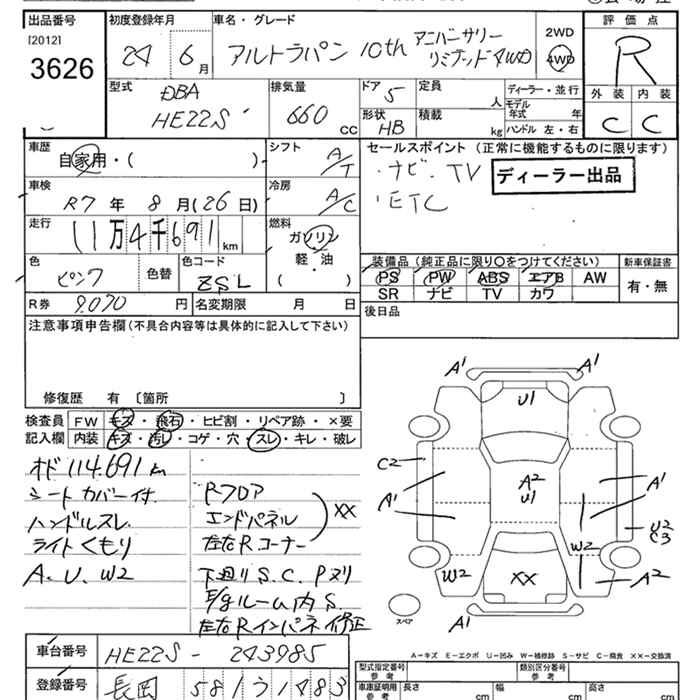 出品番号
[2012]
3626
初度登録年月
24 6月
車名・グレード
アルトラパン 10th アニバーサリー
リミテッド 4WD
2WD
4WD
評価点
R
外装 内装
C C
型式
DBA
HE22S
排気量
660 CC
ドア 5
形状 HB
定員 人
積載 kg
ディーラー・並行
モデル年式 年
ハンドル 左・右
車歴
自家用・( )
シフト A/T
車検
R7 年 8 月(26 日)
冷房 A/C
走行
11万4千691 km
燃料
ガソリン
軽・油
( )
色
ピンク
色替
色コード
ZSL
R券 9,070 円
名変期限 月 日
セールスポイント (正常に機能するものに限ります)
・ナビ・TV
・ETC
ディーラー出品
装備品(純正品に限り○をつけてください)
新車保証書
PS PW ABS エアB AW
SR ナビ TV カワ
有・無
後日品
注意事項申告欄(不具合内容等は具体的に記入して下さい)
修復歴 有 〔箇所 〕
検査員
記入欄
FW キズ・飛石・ヒビ割・リペア跡・×要
内装 キズ・汚レ・コゲ・穴・スレ・キレ・破レ
オド 114.691 km
シートカバー付
ハンドルスレ
ライトくもり
A.U.W2
Rフロア
エンドパネル
左右Rコーナー
XX
下廻りS.C.Pヌリ
E/gルーム内S.
左右Rインパネ修正
A1
A1
U1
C2
A1
A2
U1
A1
U2
C3
W2
W2
XX
A2
A1
スペア
A-キズ E-エクボ U-凹み W-補修跡 S-サビ C-腐食 XX-交換済
車台番号
HE22S - 243985
登録番号
長岡 581 う 1483
型式指定番号
参考
類別区分番号
参考
車庫証明用
参考
長さ cm
幅 cm
高さ cm